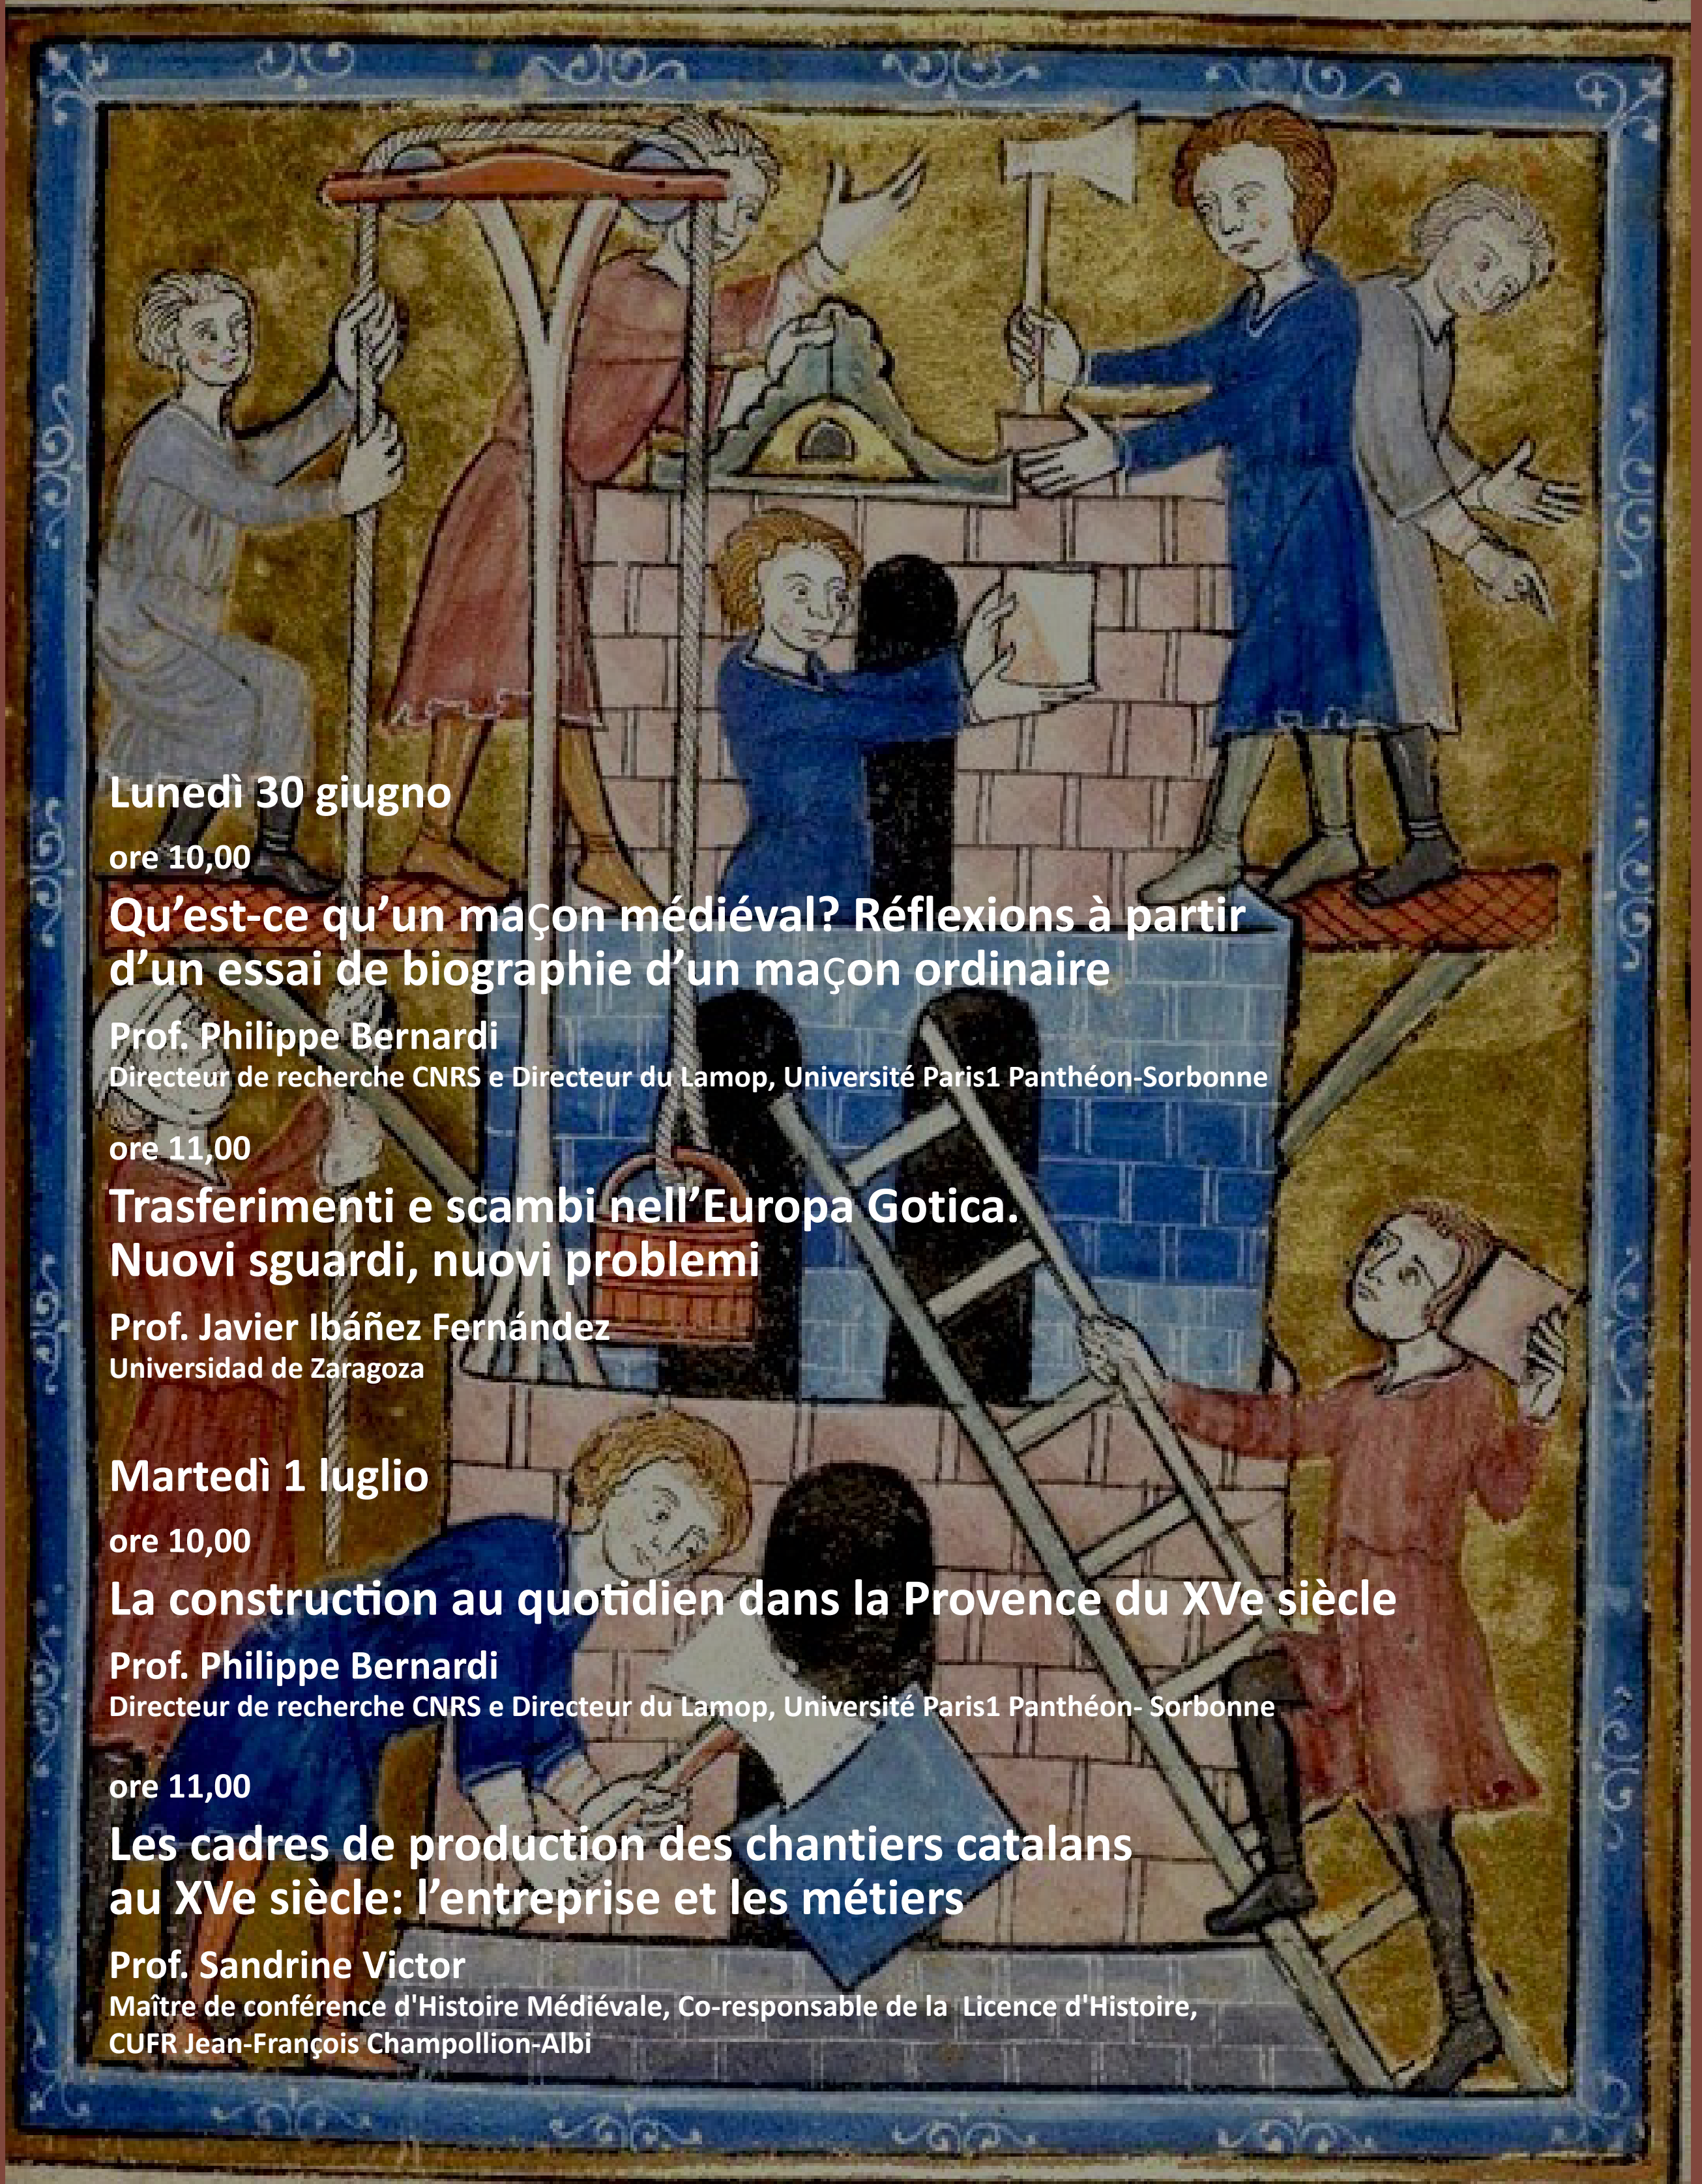 Lunedì 30 giugno
ore 10,00
Qu’est-ce qu’un maçon médiéval? Réflexions à partir
d’un essai de biographie d’un maçon ordinaire
Prof. Philippe Bernardi
Directeur de recherche CNRS e Directeur du Lamop, Université Paris1 Panthéon-Sorbonne
ore 11,00
Trasferimenti e scambi nell’Europa Gotica.
Nuovi sguardi, nuovi problemi
Prof. Javier Ibáñez Fernández
Universidad de Zaragoza
Martedì 1 luglio
ore 10,00
La construction au quotidien dans la Provence du XVe siècle
Prof. Philippe Bernardi
Directeur de recherche CNRS e Directeur du Lamop, Université Paris1 Panthéon- Sorbonne
ore 11,00
Les cadres de production des chantiers catalans
au XVe siècle: l’entreprise et les métiers
Prof. Sandrine Victor
Maître de conférence d'Histoire Médiévale, Co-responsable de la  Licence d'Histoire,
CUFR Jean-François Champollion-Albi